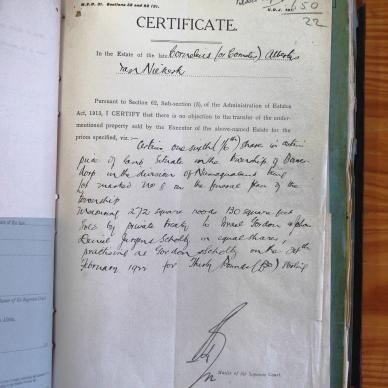 M.S.C. 21. Sections 58 and 62 (5).
U.D.J.
650
22
CERTIFICATE.
In the Estate of the late Cornelius (or Cornelis) Albertus
van Niekerk
Pursuant to Section 62, Sub-section (5), of the Administration of Estates
Act, 1913, I CERTIFY that there is no objection to the transfer of the under-
mentioned property sold by the Executor of the above-named Estate for the
prices specified, viz.:—
Certain one sixth (1/6th) share in certain
piece of land situate in the township of
dorp in the division of Namaqualand being
lot marked No 6 on the general plan of the
township
measuring 272 square roods 130 square feet
sold by private treaty to Israel Gordon & John
Daniel Jurgens Scholtz in equal shares,
practising as Gordon & Scholtz on the
February 1922 for Thirty Pounds (£30) Sterling
Master of the Supreme Court.